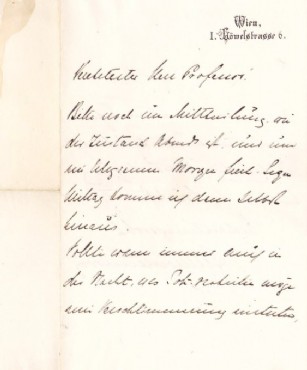 Wien,
I. Löwelstrasse 6.
Verehrtester Herr Professor!
Bitte noch um Mittheilung wie
der Zustand Abends ist, und um
ein Telegramm Morgen früh. Gegen
Mittag komme ich dann selbst
hinaus.
Sollte wann immer auch in
der Nacht, was Gott verhüten möge
eine Verschlimmerung eintreten,